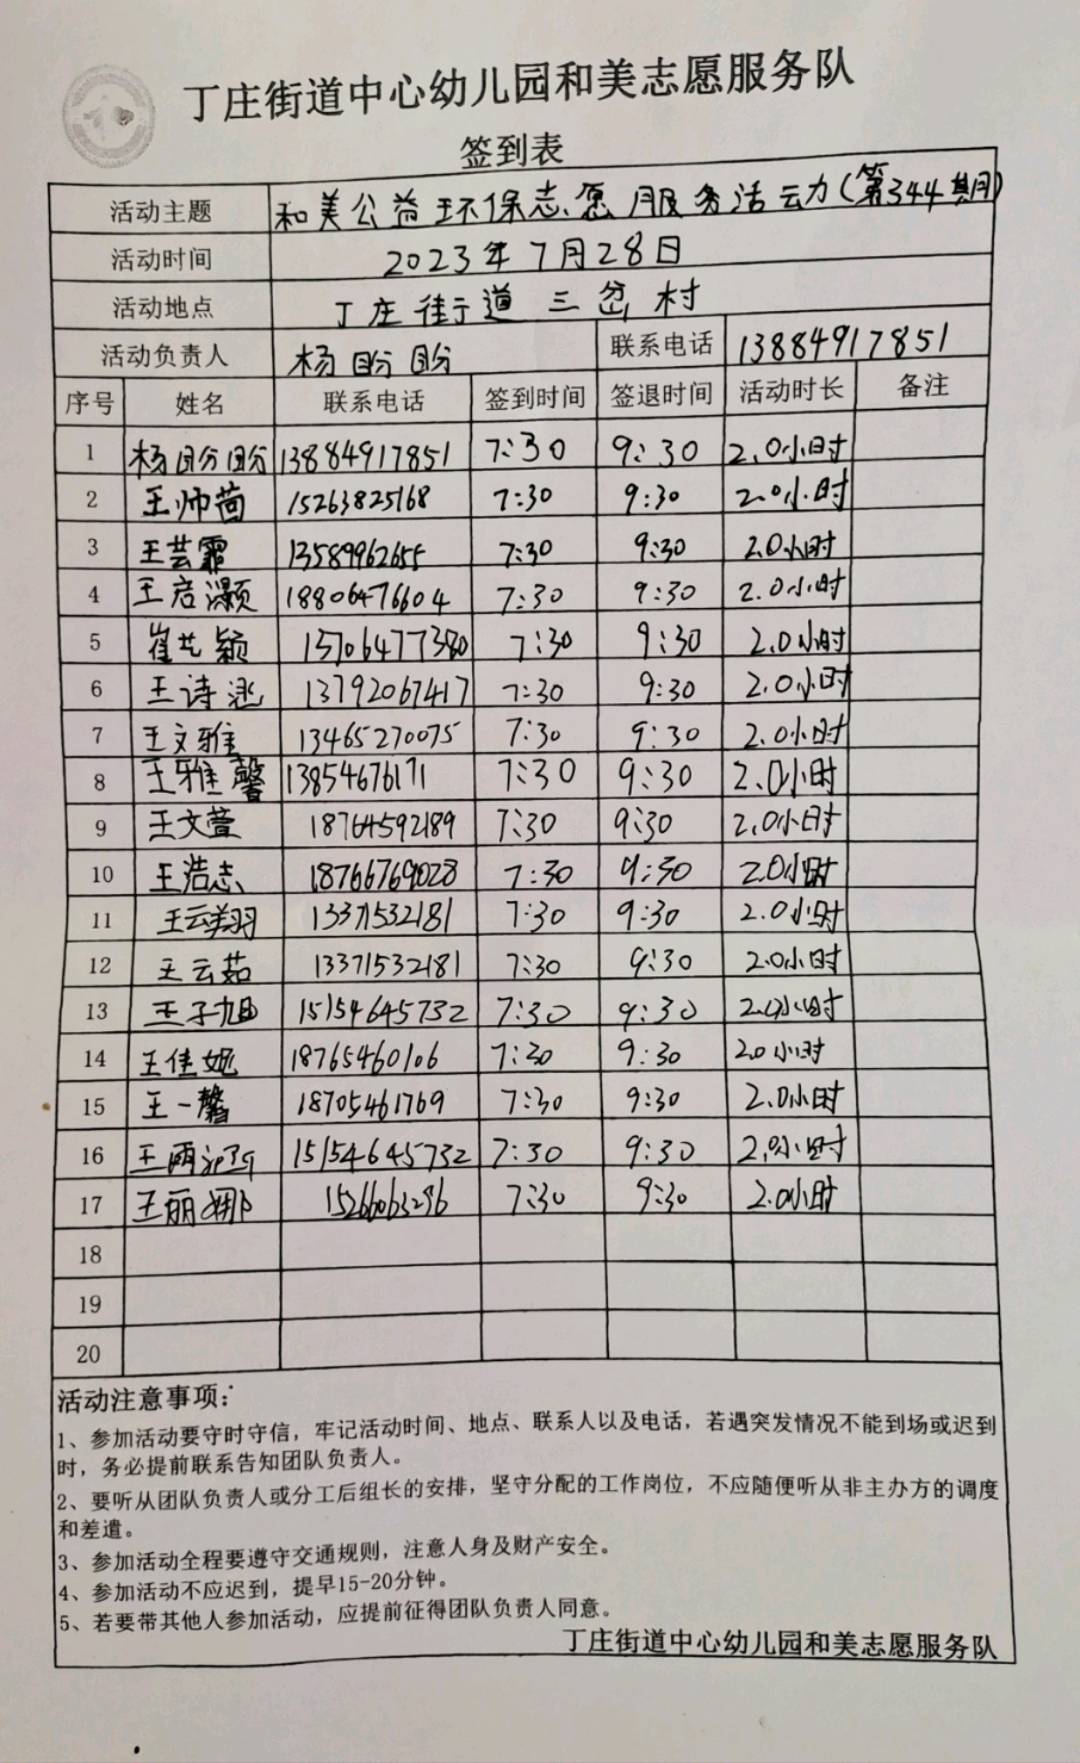 丁庄街道中心幼儿园和美志愿服务队
签到表
活动主题 和美公益环保志愿服务活动(第344期)
活动时间 2023年7月28日
活动地点 丁庄街道三岔村
活动负责人 杨盼盼 联系电话 13884917851
序号 姓名 联系电话 签到时间 签退时间 活动时长 备注
1 杨盼盼 13884917851 7:30 9:30 2.0小时
2 王帅茴 15263825168 7:30 9:30 2.0小时
3 王芸霏 13589962655 7:30 9:30 2.0小时
4 王启灏 18806476604 7:30 9:30 2.0小时
5 崔艺颖 15706477380 7:30 9:30 2.0小时
6 王诗涵 13792067417 7:30 9:30 2.0小时
7 王文雅 13465270075 7:30 9:30 2.0小时
8 王雅馨 13854676171 7:30 9:30 2.0小时
9 王文萱 18764592189 7:30 9:30 2.0小时
10 王浩志 18766769028 7:30 9:30 2.0小时
11 王云翔 13371532181 7:30 9:30 2.0小时
12 王云茹 13371532181 7:30 9:30 2.0小时
13 王子旭 15154645732 7:30 9:30 2.0小时
14 王佳妮 18765460106 7:30 9:30 2.0小时
15 王一馨 18705461769 7:30 9:30 2.0小时
16 王雨 15154645732 7:30 9:30 2.0小时
17 王丽娜 15266063296 7:30 9:30 2.0小时
18
19
20
活动注意事项:
1、参加活动要守时守信，牢记活动时间、地点、联系人以及电话，若遇突发情况不能到场或迟到
时，务必提前联系告知团队负责人。
2、要听从团队负责人或分工后组长的安排，坚守分配的工作岗位，不应随便听从非主办方的调度
和差遣。
3、参加活动全程要遵守交通规则，注意人身及财产安全。
4、参加活动不应迟到，提早15-20分钟。
5、若要带其他人参加活动，应提前征得团队负责人同意。
丁庄街道中心幼儿园和美志愿服务队